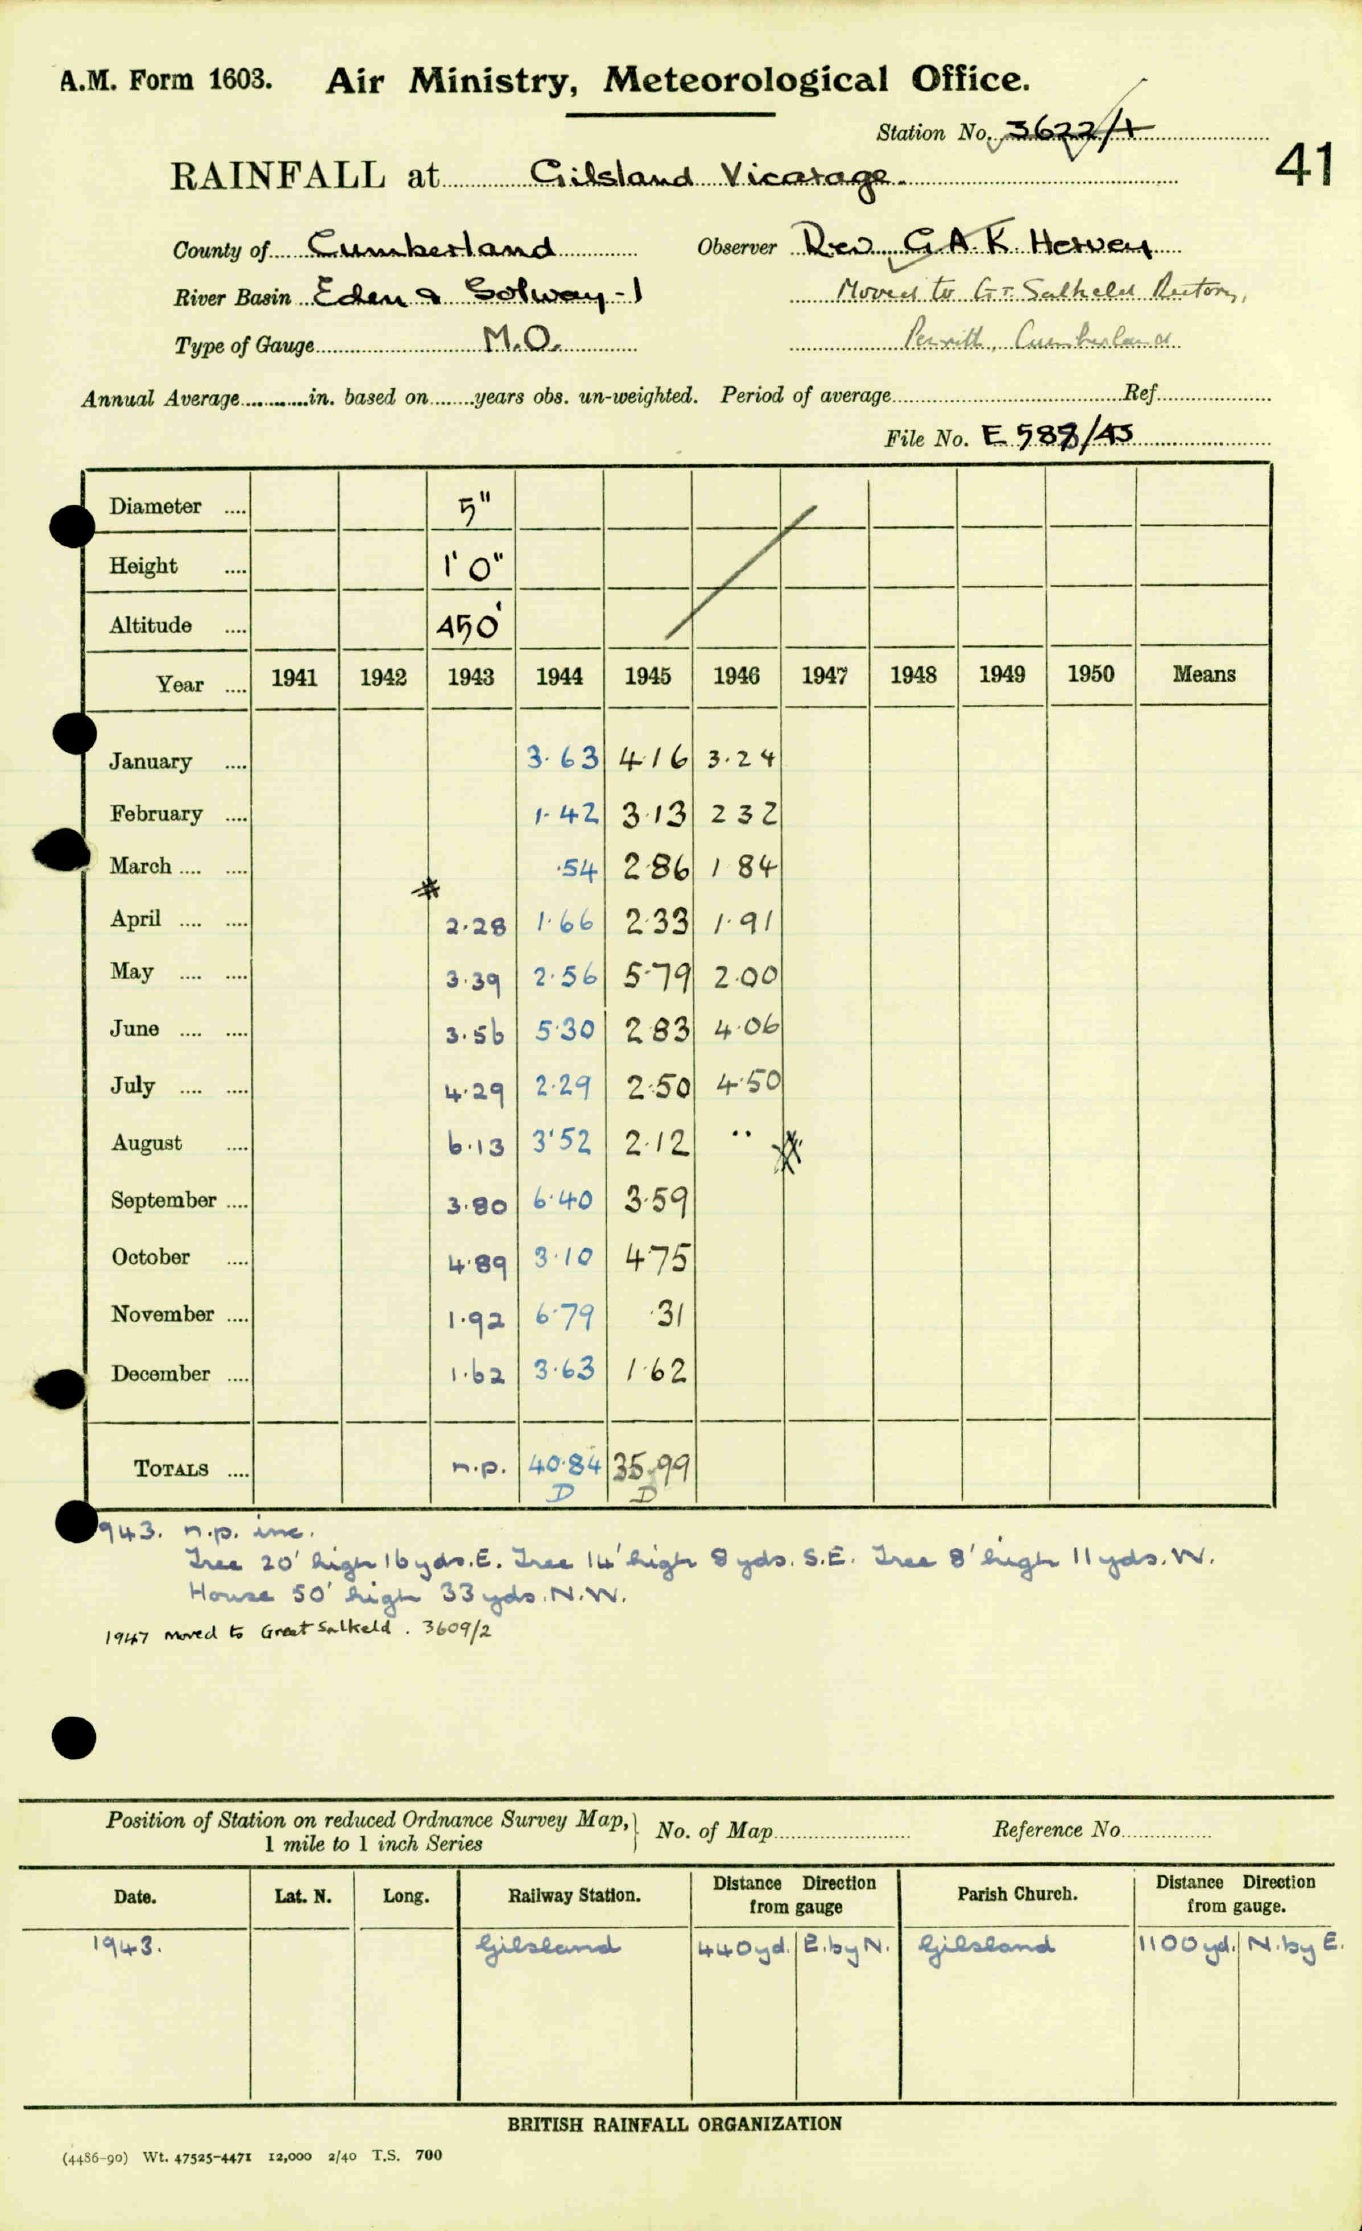 A.M. Form 1603. Air Ministry, Meteorological Office.
Station No. 3622/4
41
RAINFALL at Gilsland Vicarage.
County of Cumberland Observer Rev. G A K Hervey
River Basin Eden & Solway-1 Moved to Gt. Salkeld Rectory,
Type of Gauge M.O. Penrith, Cumberland
Annual Average............in. based on........years obs. un-weighted. Period of average........ Ref........
File No. E 588/43
Diameter .... 5"
Height .... 1' 0"
Altitude .... 450'
Year .... 1941 1942 1943 1944 1945 1946 1947 1948 1949 1950 Means
January .... 3.63 4.16 3.24
February .... 1.42 3.13 2 32
March .... .... .54 2.86 1 84
April .... .... 2.28 1.66 2.33 1.91
May .... .... 3.39 2.56 5.79 2.00
June .... .... 3.56 5.30 2 83 4.06
July .... .... 4.29 2.29 2.50 4.50
August .... 6.13 3.52 2.12 ..
September .... 3.80 6.40 3.59
October .... 4.89 3.10 4.75
November .... 1.92 6.79 .31
December .... 1.62 3.63 1.62
TOTALS .... n.p. 40.84 35.99
D D
943. n.p. inc.
Tree 20' high 16 yds. E. Tree 14' high 8 yds. S.E. Tree 8' high 11 yds. W.
House 50' high 33 yds. N.W.
1947 moved to Great Salkeld. 3609/2
Position of Station on reduced Ordnance Survey Map, } No. of Map........ Reference No........
1 mile to 1 inch Series
Date. Lat. N. Long. Railway Station. Distance from gauge Direction Parish Church. Distance from gauge. Direction
1943. Gilsland 440 yd. E. by N. Gilsland 1100 yd. N. by E.
BRITISH RAINFALL ORGANIZATION
(4486-90) Wt. 47525-4471 12,000 2/40 T.S. 700